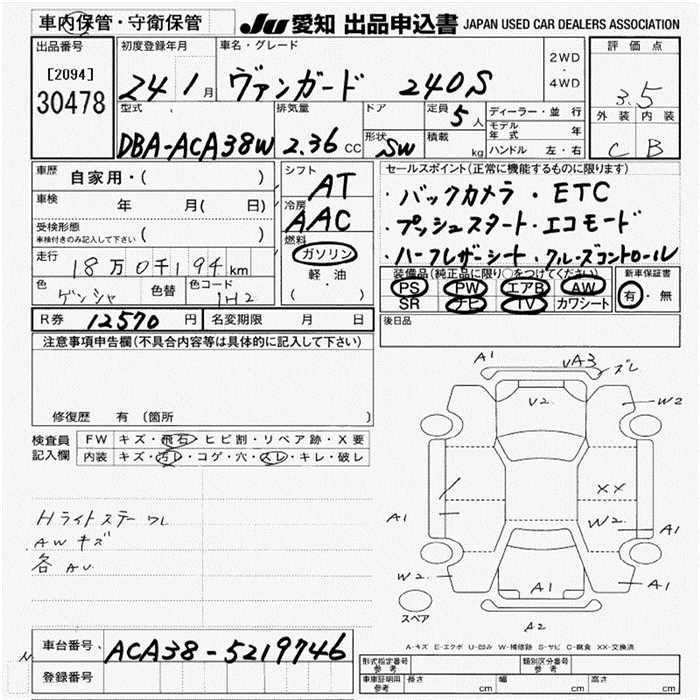 車内保管・守衛保管
JU 愛知 出品申込書 JAPAN USED CAR DEALERS ASSOCIATION
出品番号 [2094] 30478
初度登録年月 24 1月
車名・グレード ヴァンガード 240S
2WD・4WD
評価点 3.5
外装 内装
C B
型式 DBA-ACA38W
排気量 2.36 CC
ドア
形状 SW
定員 5 人
積載 kg
ディーラー・並行
モデル年式 年
ハンドル 左・右
車歴 自家用・( )
車検 年 月( 日)
受検形態 ( )
車検付きのみ記入して下さい
走行 18万0千194km
色 ゲンシャ 色替 色コード 1H2
シフト AT
冷房 AAC
燃料 ガソリン
軽・油
( )
セールスポイント(正常に機能するものに限ります)
・バックカメラ・ETC
・プッシュスタート・エコモード
・ハーフレザーシート・クルーズコントロール
装備品(純正品に限り○をつけてください)
PS PW エアB AW
SR ナビ TV カワシート
新車保証書
有・無
R券 12570 円 名変期限 月 日
後日品
注意事項申告欄(不具合内容等は具体的に記入して下さい)
修復歴 有 (箇所
検査員記入欄
FW キズ・飛石・ヒビ割・リペア跡・X要
内装 キズ・汚レ・コゲ・穴・スレ・キレ・破レ
Hライトステー ワレ
AW キズ
各 AU
A1 UA3 ズレ
V2 W2
XX
A1 W2 A1
W2 A1 A1
スペア
A2
A-キズ E-エクボ U-凹み W-補修跡 S-サビ C-腐食 XX-交換済
車台番号 ACA38-5219746
登録番号
形式指定番号 参考
類別区分番号 参考
車庫証明用 参考 長さ cm 幅 cm 高さ cm